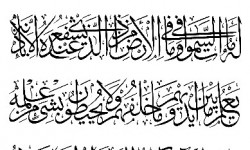 لَهُ مَا فِي السَّمٰوٰتِ وَمَا فِي الْأَرْضِ مَنْ ذَا الَّذِي يَشْفَعُ عِنْدَهُ إِلَّا بِإِذْنِهِ
يَعْلَمُ مَا بَيْنَ أَيْدِيهِمْ وَمَا خَلْفَهُمْ وَلَا يُحِيطُونَ بِشَيْءٍ مِنْ عِلْمِهِ